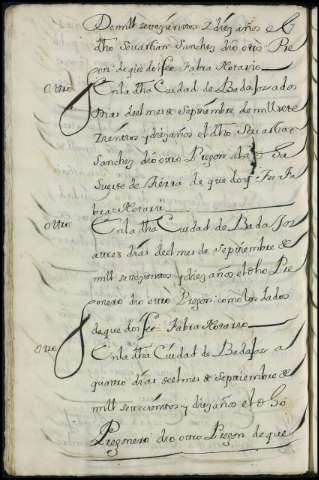 De mill setezientos y diez años el
dho Sevastian Sanchez dio otro Pre
gon de que doi fee Fabra Notario
Otro En la dha Ciudad de Badajoz a dos
dias del mes de septiembre de mill sete
zientos y diez años el dho Sevastian
Sanchez dio otro Pregon a la
suerte de tierra de que doy fee Fa
bra Notario
Otro En la dha Ciudad de Badajoz
a tres dias del mes de septiembre de
mill setezientos y diez años el dho Pre
gonero dio otro Pregon como los dados
de que doi fee Fabra Notario
Otro En la dha Ciudad de Badajoz a
quatro dias del mes de septiembre de
mill setezientos y diez años el dho
Pregonero dio otro Pregon de que